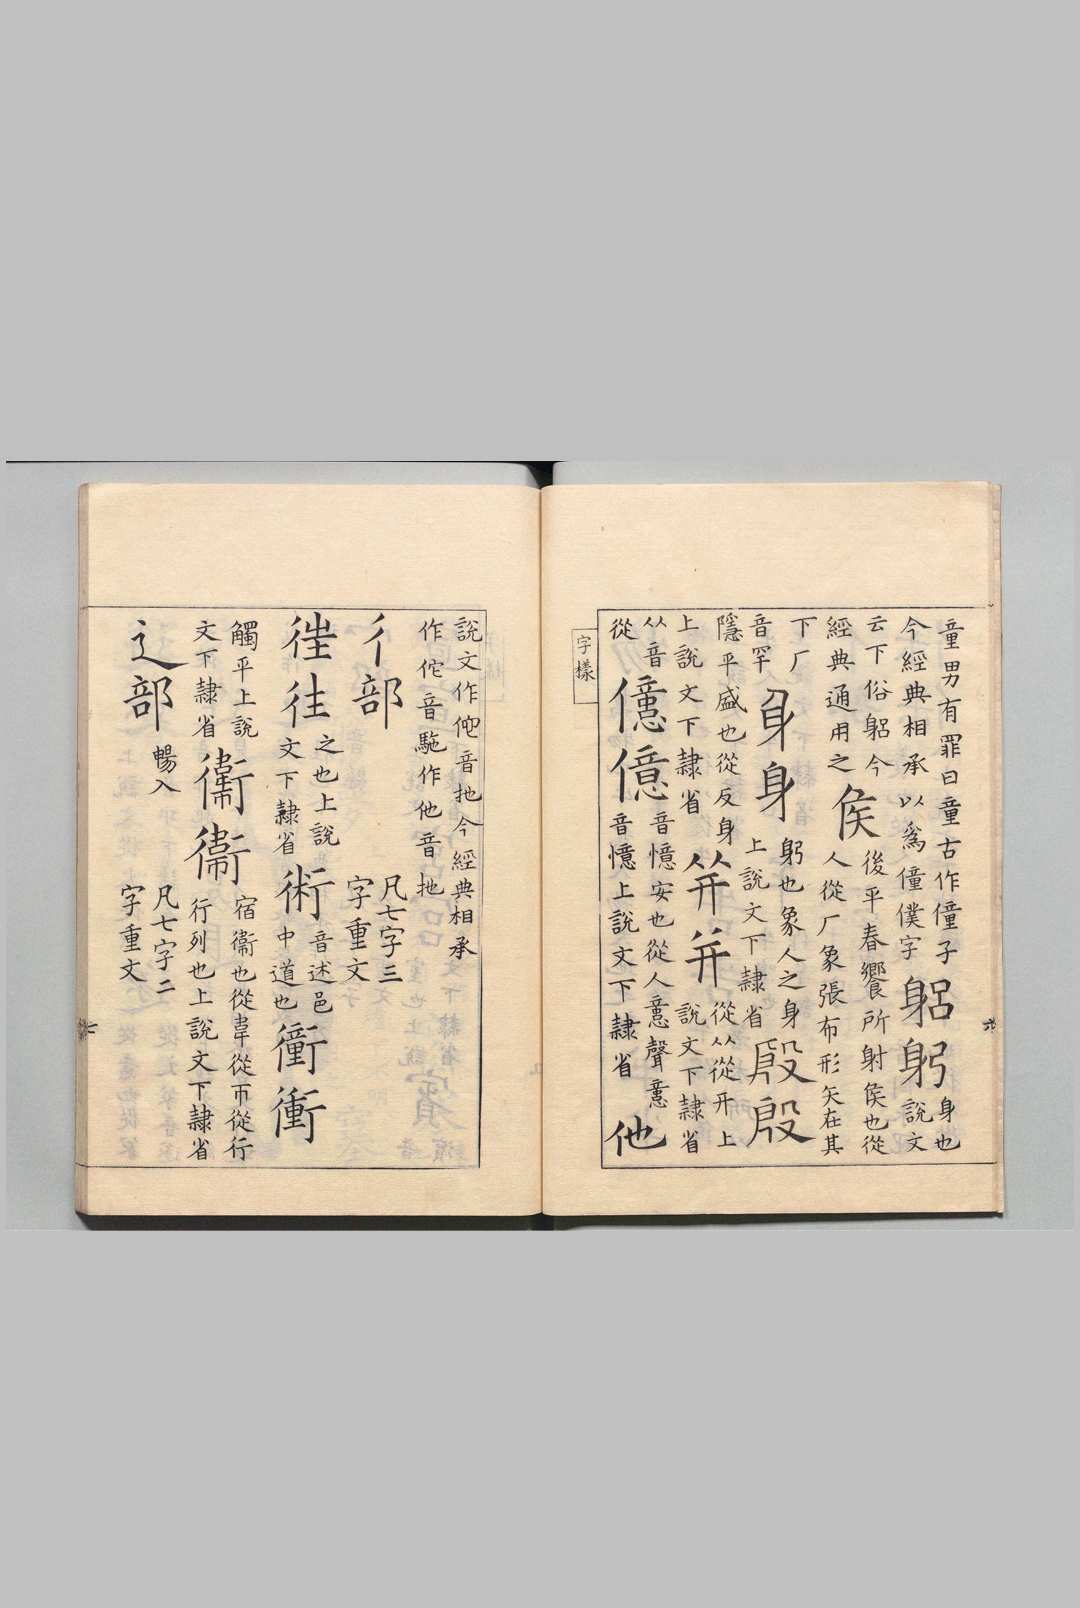 童男有罪曰童古作僮子
今經典相承以爲僮僕字
躳躬
身也
說文
云下俗躳今
經典通用之
侯
後平春饗所射侯也從
人從厂象張布形矢在其
下厂
音罕
身
躬也象人之身
上說文下隸省
殷
隱平盛也從反身
上說文下隸省
并
從从從幵上
說文下隸省
从音
從
億
音憶安也從人意聲意
音憶上說文下隸省
他
字樣
六
說文作佗音扡今經典相承
作佗音駞作他音扡
彳部
凡七字三
字重文
往
之也上說
文下隸省
術
音述邑
中道也
衝
觸平上說
文下隸省
衞
宿衞也從韋從帀從行
行列也上說文下隸省
辶部
暢入
凡七字二
字重文
七